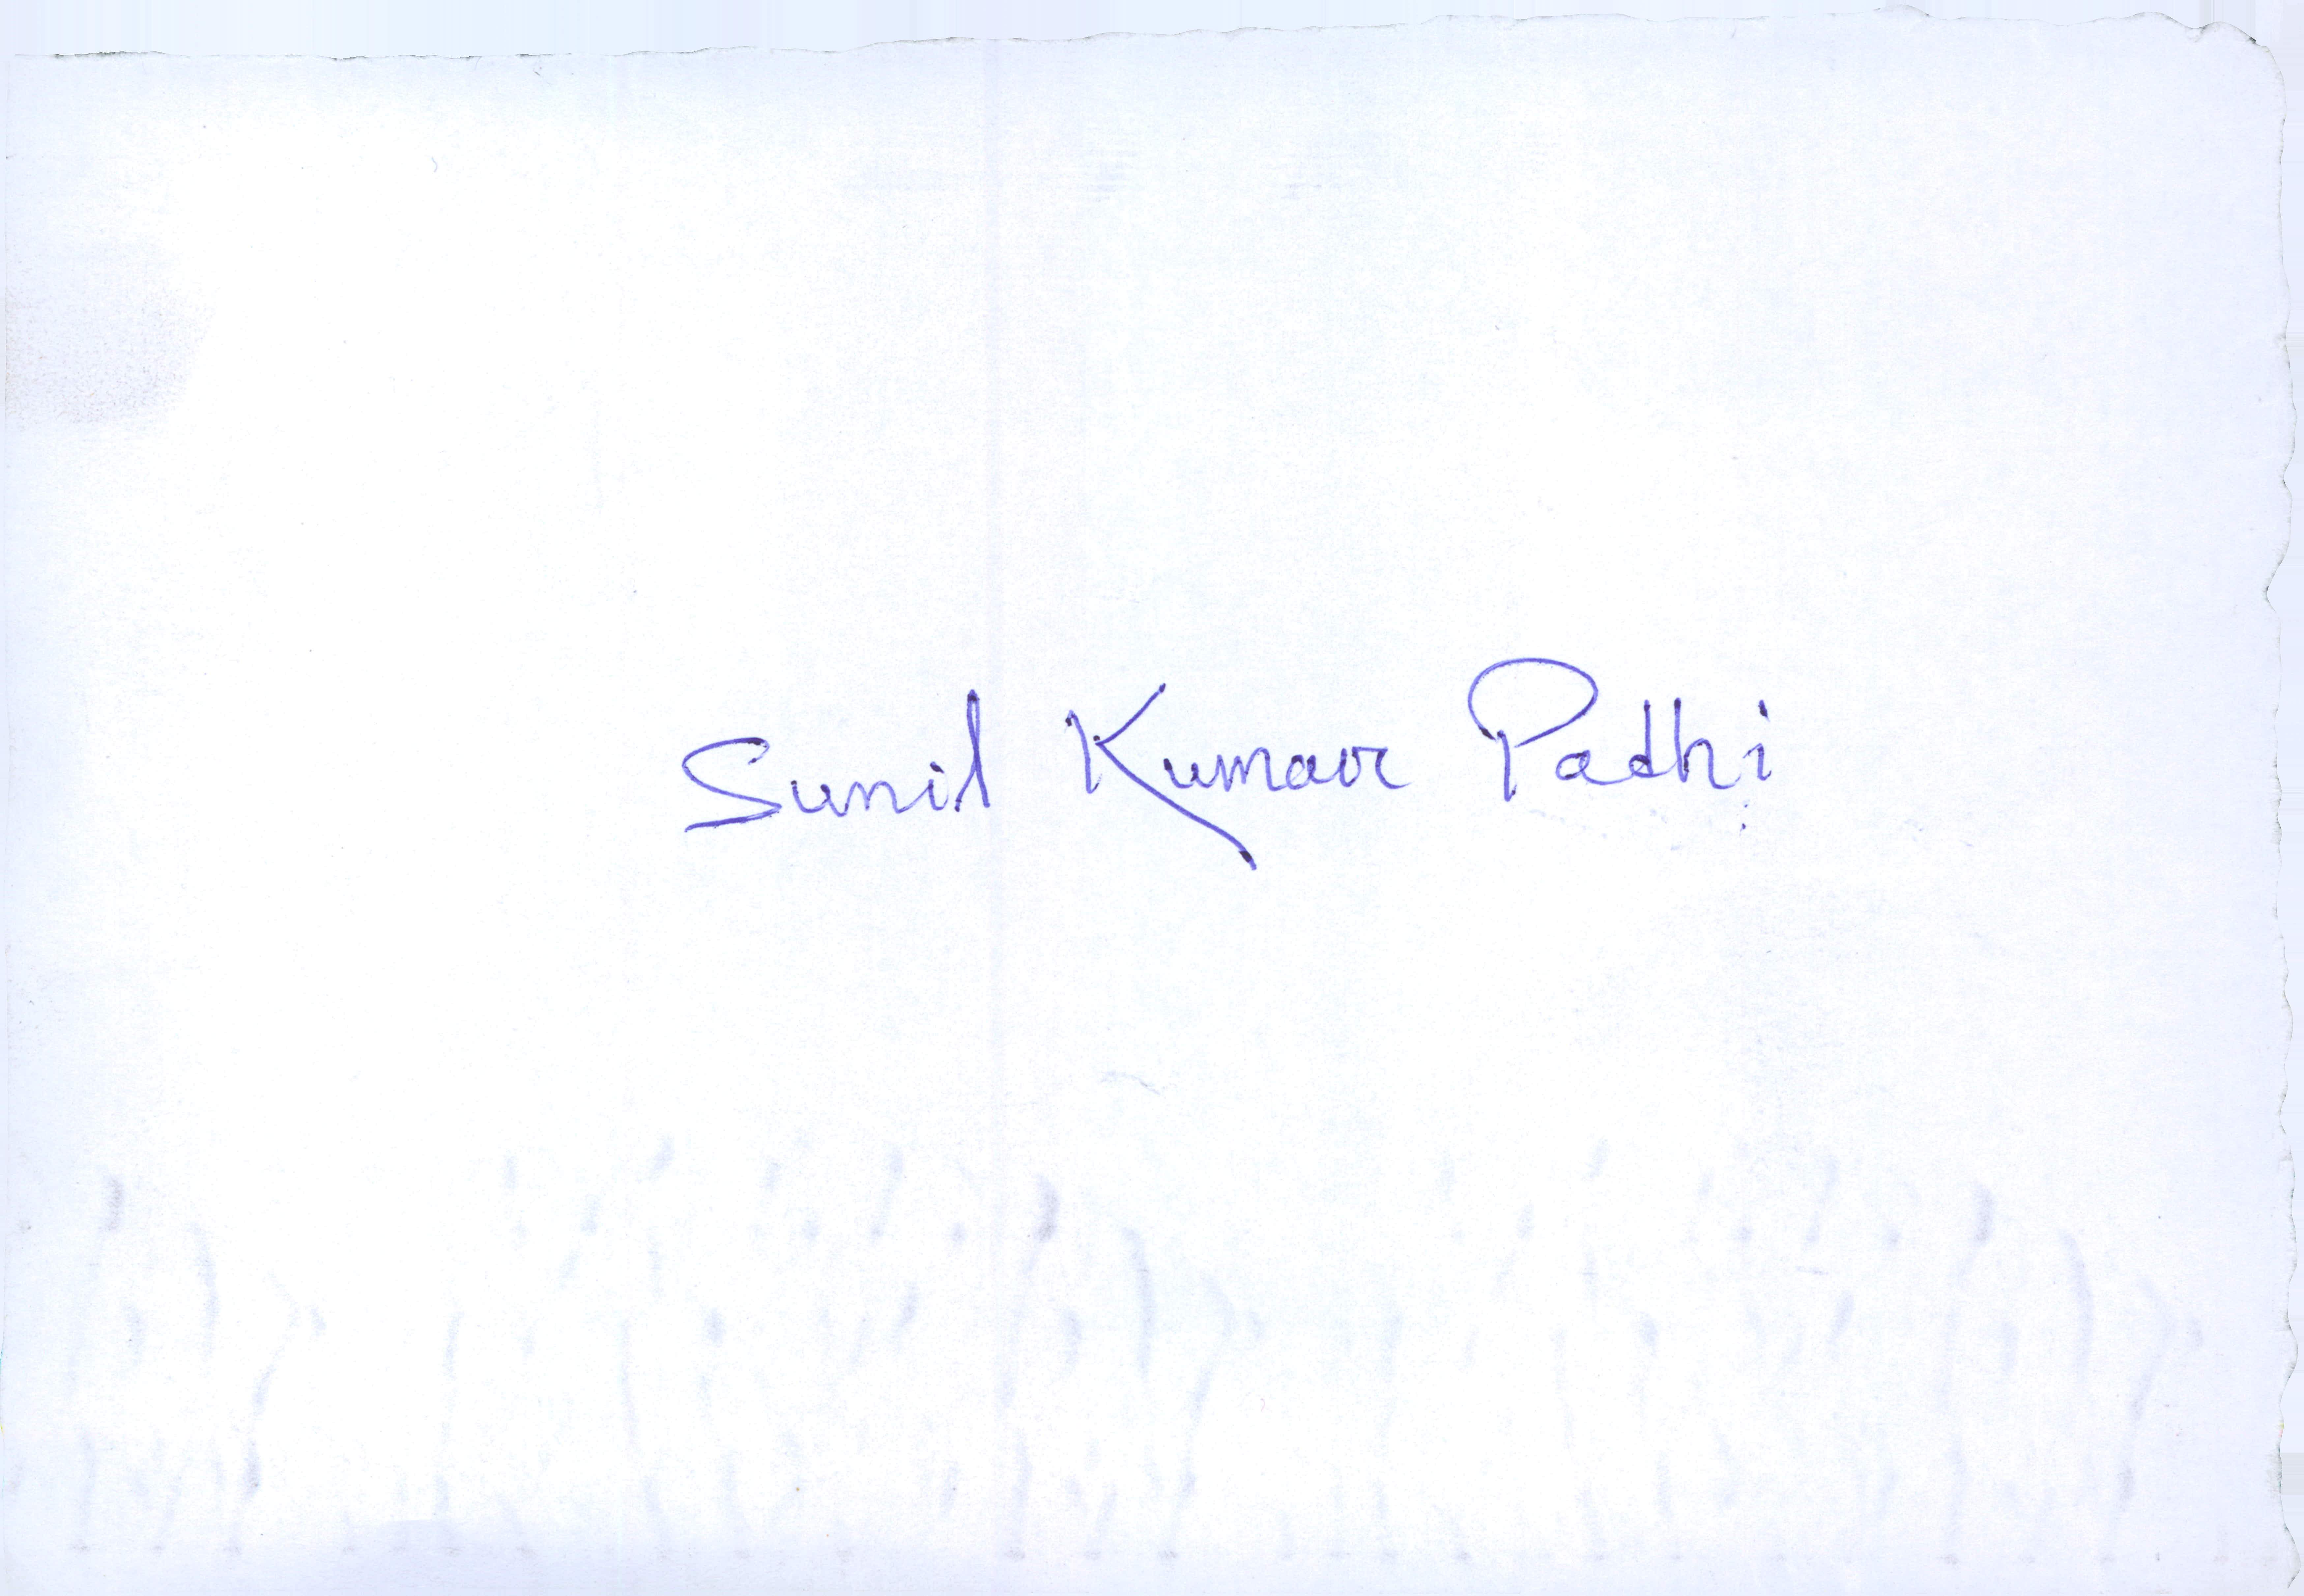 Sunil Kumar Padhi